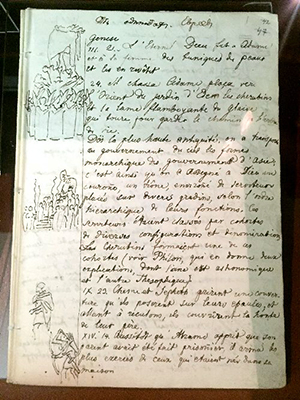 42
47
Genese
III. 21. L'Eternel Dieu fit a Adam
et a sa femme des tuniques de peaux
et les en revêtit
24 Il chassa Adam, plaça vers
l'Orient du jardin d'Eden les chérubins
et la lame flamboyante du glaive
qui tourne pour garder le chemin de l'arbre
de vie.
Dès la plus haute antiquité, on a transporté
au gouvernement du ciel les formes
monarchiques des gouvernements d'Asie,
c'est ainsi qu'on a assigné à Dieu une
couronne, un trône environné de serviteurs
placés sur divers gradins selon l'ordre
hiérarchique de leurs fonctions. Ces
serviteurs étaient divisés par cohortes
de diverses configurations et dénominations
Les Chérubins formaient une de ces
cohortes (voir Philon, qui en donne deux
explications, dont l'une est astronomique
et l'autre Théosophique)
IX. 23. Chem et Japheth prirent une couver-
ture qu'ils posèrent sur leurs épaules, et
allant à reculons, ils couvrirent la honte
de leur père.
XIV. 14. Aussitôt qu'Abrame apprit que son
parent avait été fait prisonnier, il arma les
plus exercés de ceux qui étaient nés dans sa
maison